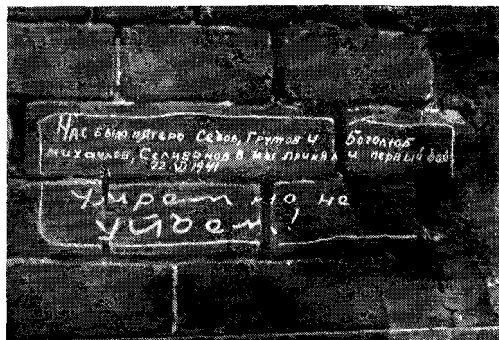 Нас было пятеро Седов, Грутов И Боголюб
михаилов, Селиванов В мы приняли первый бой
22 VI 1941
Умрем но не
уйдем!